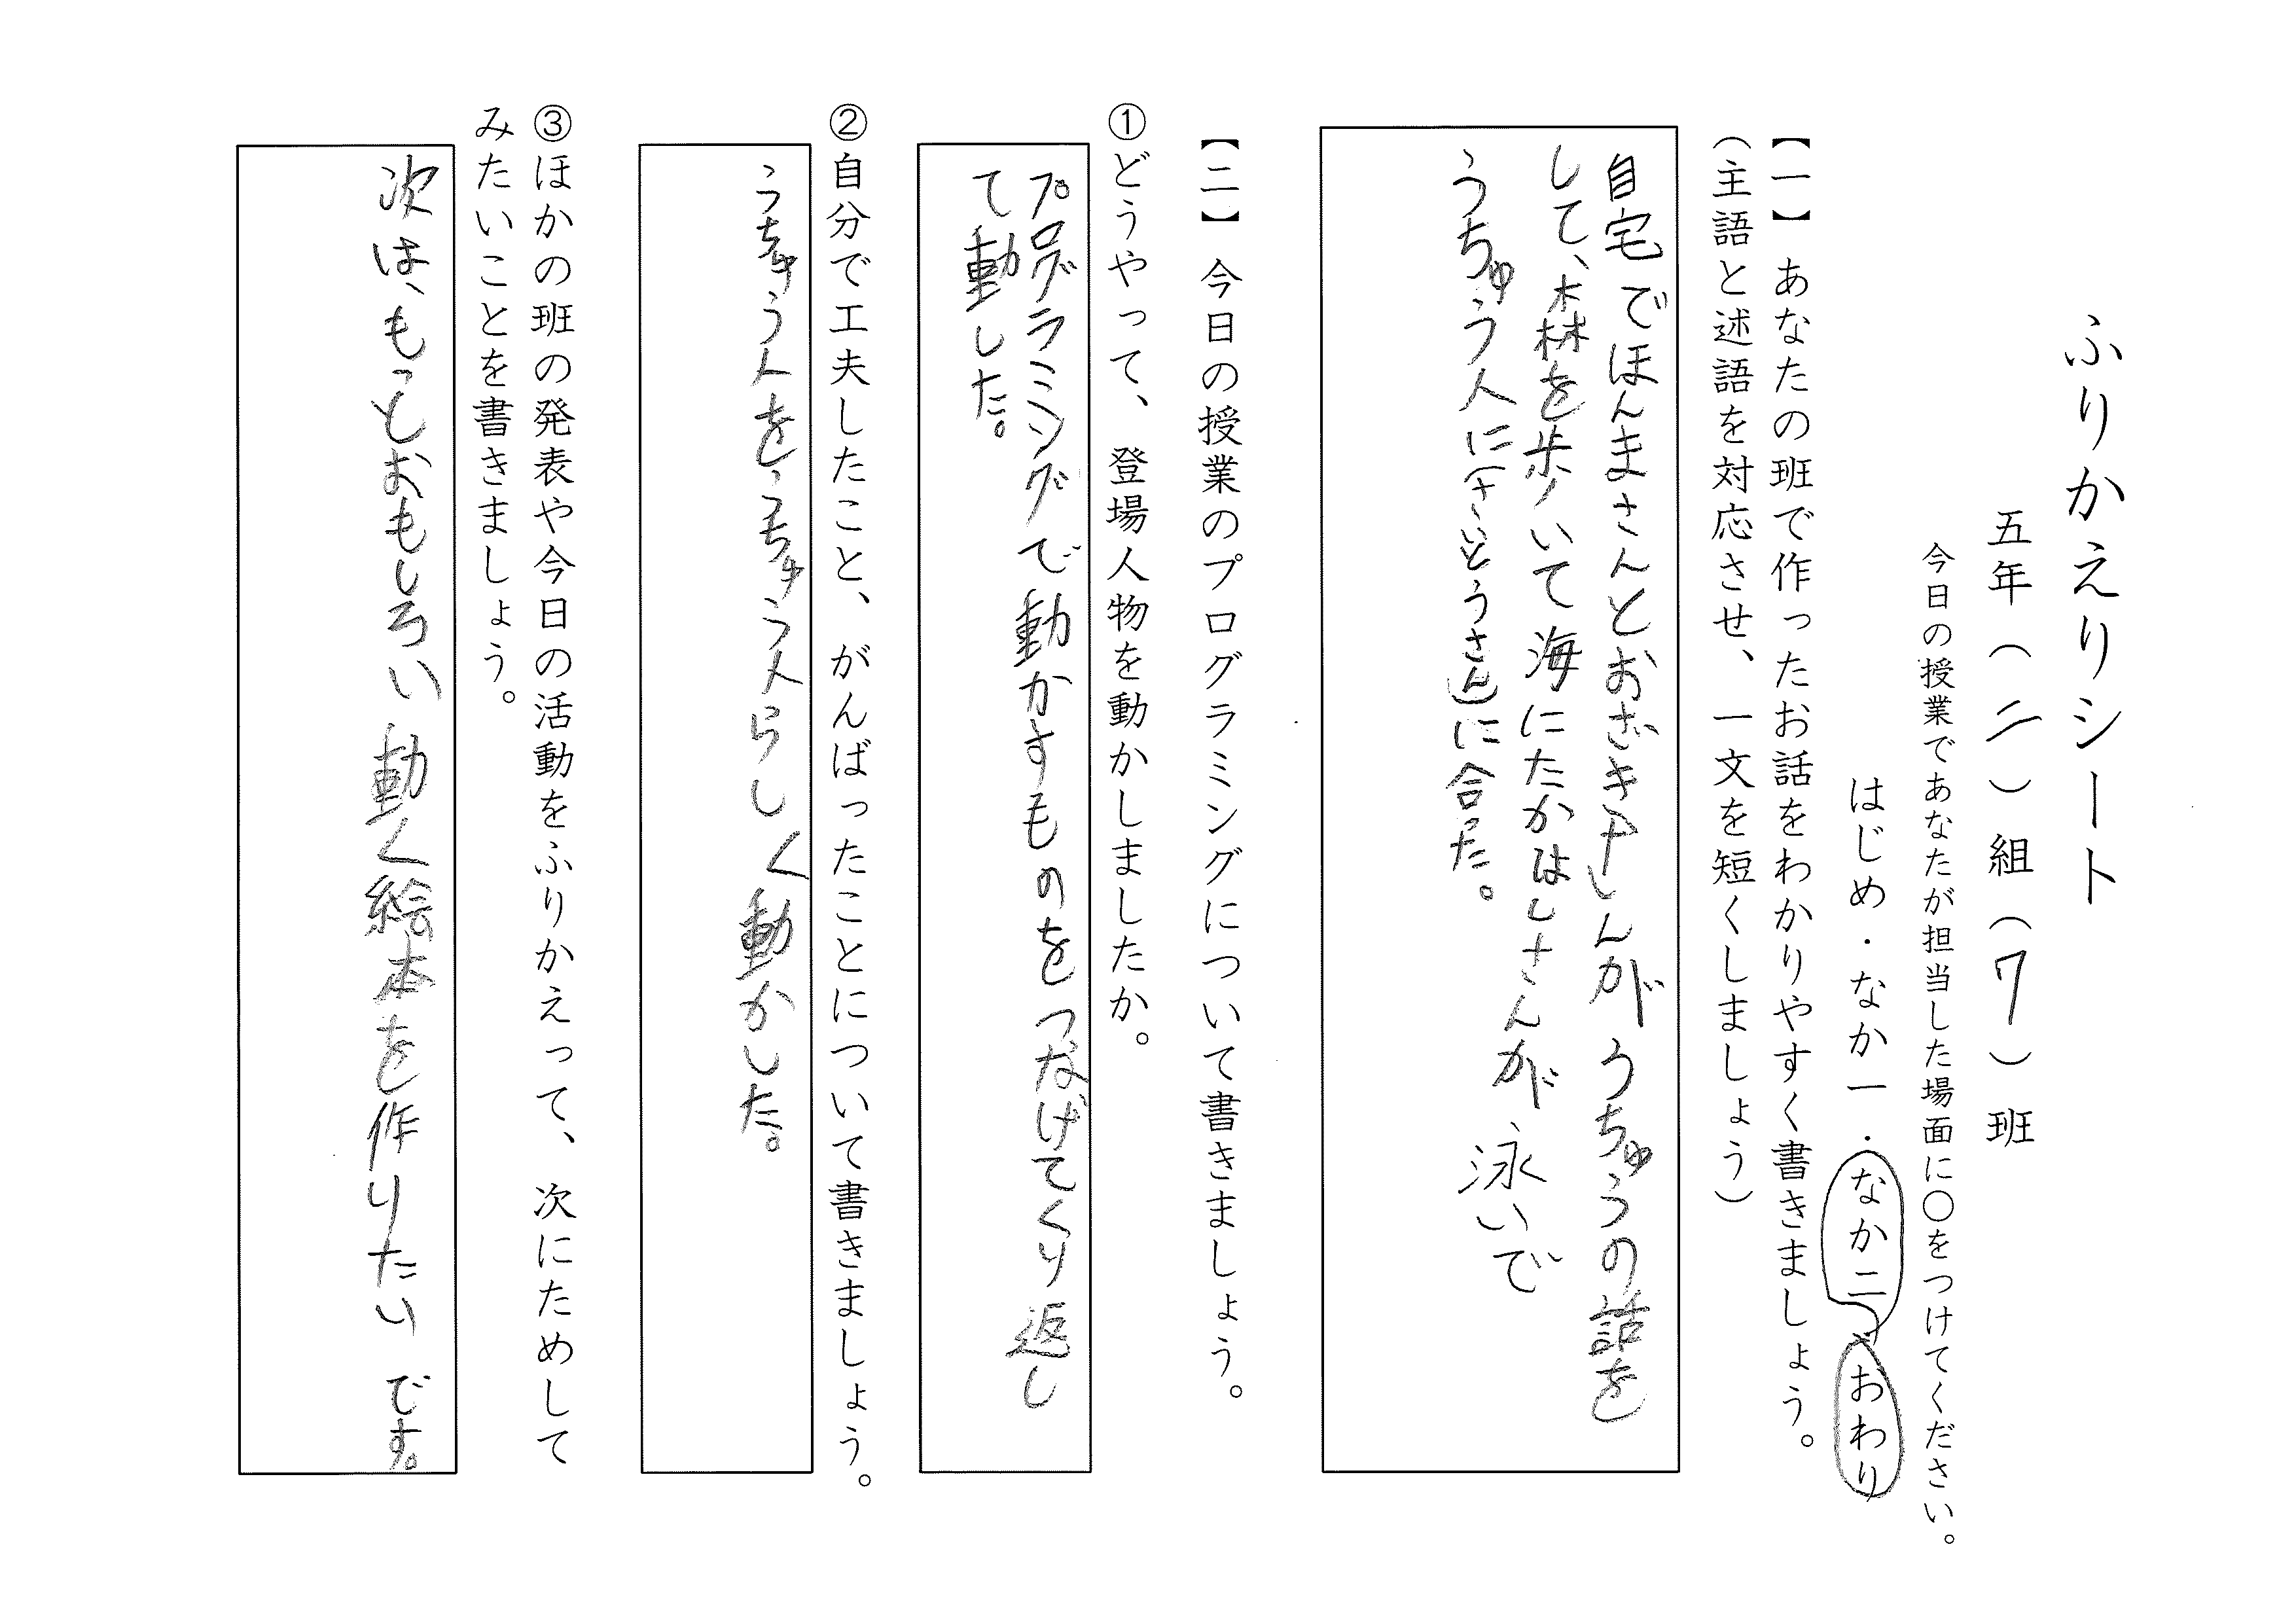 ふりかえりシート
五年（二）組（7）班
今日の授業であなたが担当した場面に〇をつけてください。
はじめ・なか一・なか二・おわり
【一】あなたの班で作ったお話をわかりやすく書きましょう。
（主語と述語を対応させ、一文を短くしましょう）
自宅でほんまさんとおざきさんがうちゅうの話を
して、森を歩いて海にたかはしさんが泳いで
うちゅう人に(さいとうさん)に合た。
【二】今日の授業のプログラミングについて書きましょう。
①どうやって、登場人物を動かしましたか。
プログラミングで動かすものをつなげてくり返し
て動した。
②自分で工夫したこと、がんばったことについて書きましょう。
うちゅう人をうちゅう人らしく動かした。
③ほかの班の発表や今日の活動をふりかえって、次にためして
みたいことを書きましょう。
次は、もっとおもしろい動く絵本を作りたいです。